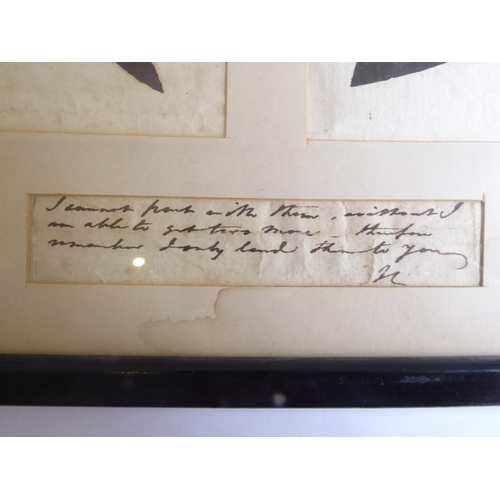 I cannot part with them, without I
am able to get two more - therefore
remember I only lend them to you